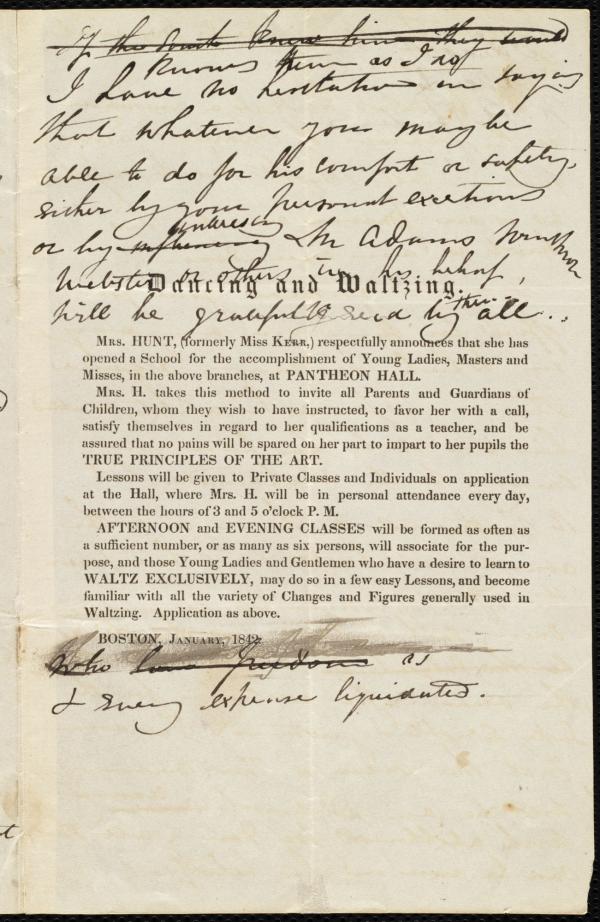 If the South knew him they would
knows them as I do
I have no hesitation in saying
that whatever you may be
able to do for his comfort or safety,
either by your personal exertions
interesting
or by influencing Mr Adams
Webster or others in his behalf,
Dancing and Waltzing.
will be gratefully by them all.
Mrs. HUNT, (formerly Miss Kerr,) respectfully announces that she has
opened a School for the accomplishment of Young Ladies, Masters and
Misses, in the above branches, at PANTHEON HALL.
Mrs. H. takes this method to invite all Parents and Guardians of
Children, whom they wish to have instructed, to favor her with a call,
satisfy themselves in regard to her qualifications as a teacher, and be
assured that no pains will be spared on her part to impart to her pupils the
TRUE PRINCIPLES OF THE ART.
Lessons will be given to Private Classes and Individuals on application
at the Hall, where Mrs. H. will be in personal attendance every day,
between the hours of 3 and 5 o'clock P. M.
AFTERNOON and EVENING CLASSES will be formed as often as
a sufficient number, or as many as six persons, will associate for the pur-
pose, and those Young Ladies and Gentlemen who have a desire to learn to
WALTZ EXCLUSIVELY, may do so in a few easy Lessons, and become
familiar with all the variety of Changes and Figures generally used in
Waltzing. Application as above.
BOSTON, January, 1842.
who love freedom as
& every expense liquidated.